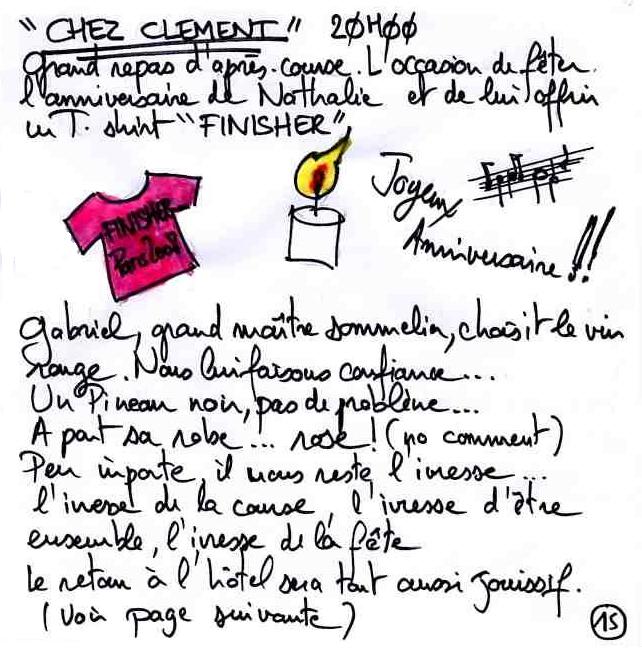 "CHEZ CLEMENT" 20H00
Grand repas d'après-course. L'occasion de fêter
l'anniversaire de Nathalie et de lui offrir
un T-shirt "FINISHER"
FINISHER
Paris 2008
Joyeux
Anniversaire!!
Gabriel, grand maître sommelier, choisit le vin
rouge. Nous lui faisons confiance...
Un Pineau noir, pas de problème...
A part sa robe... rosé! (no comment)
Peu importe, il nous reste l'ivresse...
l'ivresse de la course, l'ivresse d'être
ensemble, l'ivresse de la fête
Le retour à l'hôtel sera tout aussi jouissif.
(Voir page suivante)
15